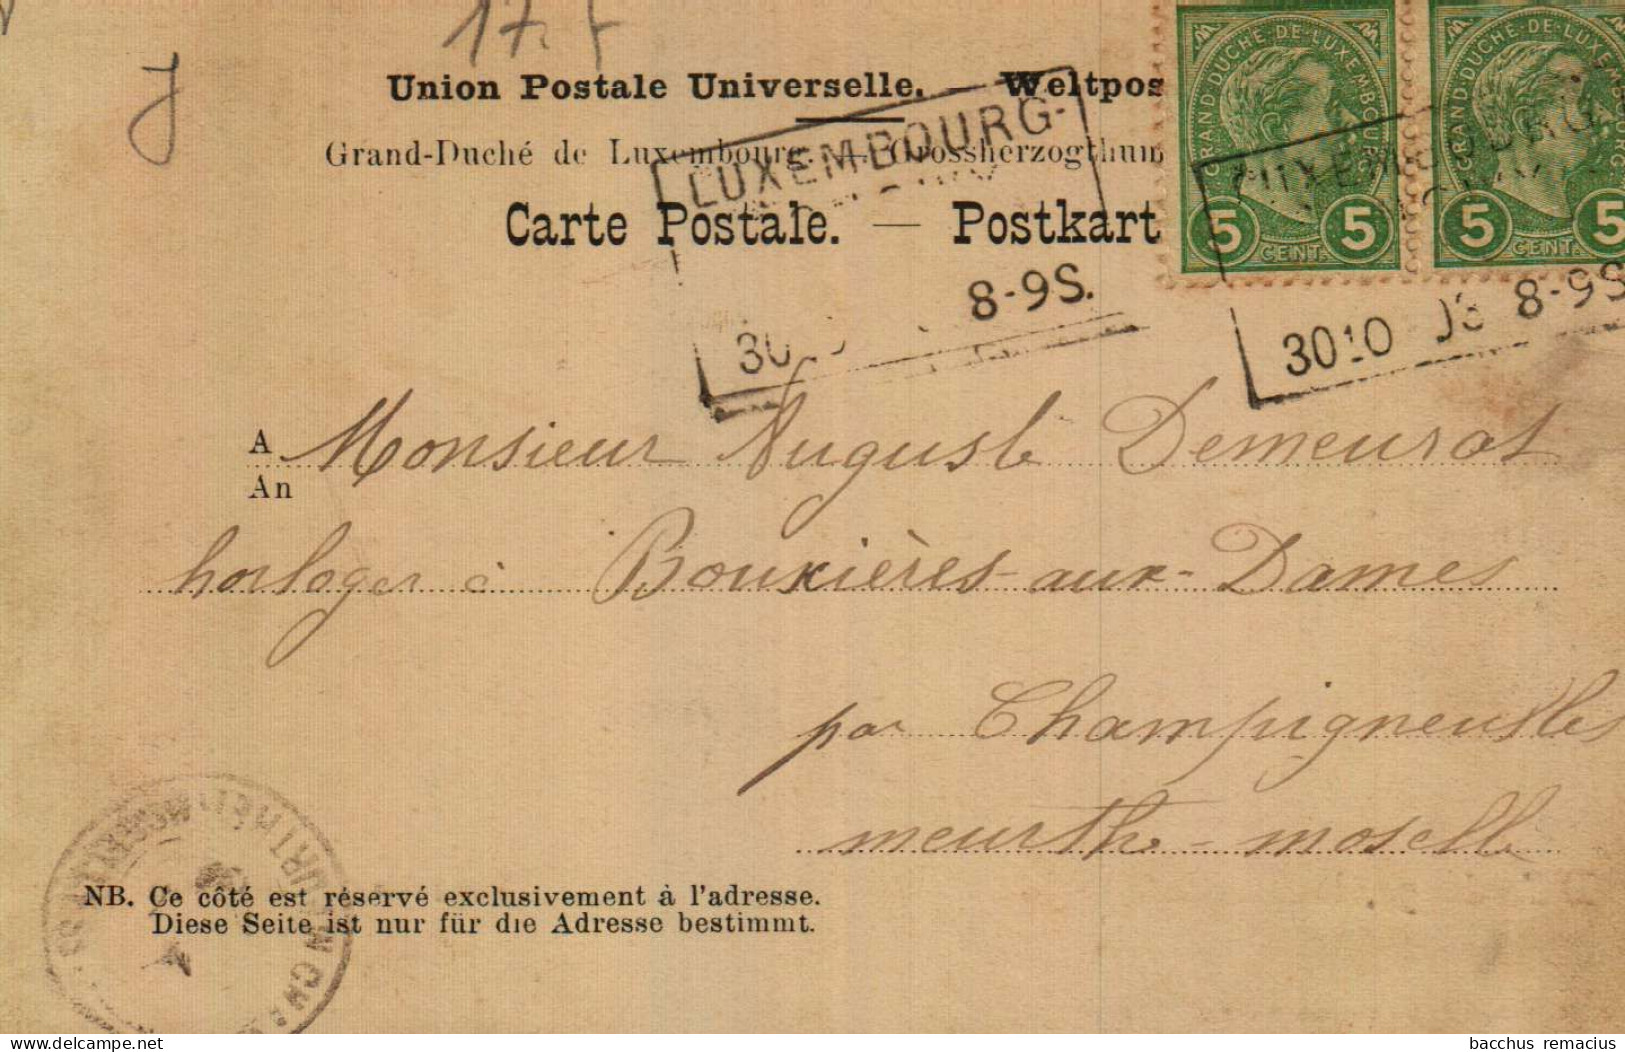 17. F
J
Union Postale Universelle. — Weltpos
Grand-Duché de Luxembourg. — Grossherzogthum
Carte Postale. — Postkart
GRAND-DUCHÉ-DE-LUXEMBOURG
5 CENT. 5
GRAND-DUCHÉ-DE-LUXEMBOURG
5 CENT. 5
LUXEMBOURG-
8-9S.
30
LUXEMBOURG
3010 8-9S
A
An
Monsieur Auguste Demeurat
horloger à Bouxières-aux-Dames
par Champigneulles
meurthe-moselle
NB. Ce côté est réservé exclusivement à l'adresse.
Diese Seite ist nur für die Adresse bestimmt.
delcampe.net
bacchus remacius